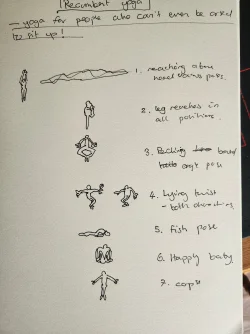 Recumbent yoga
- yoga for people who can't even be arsed
to sit up!
1. reaching above
head
pose.
2. leg reaches in
all positions.
3.
angle pose
4. Lying twist
- both directions
5. fish pose
6. Happy baby
7. corpse